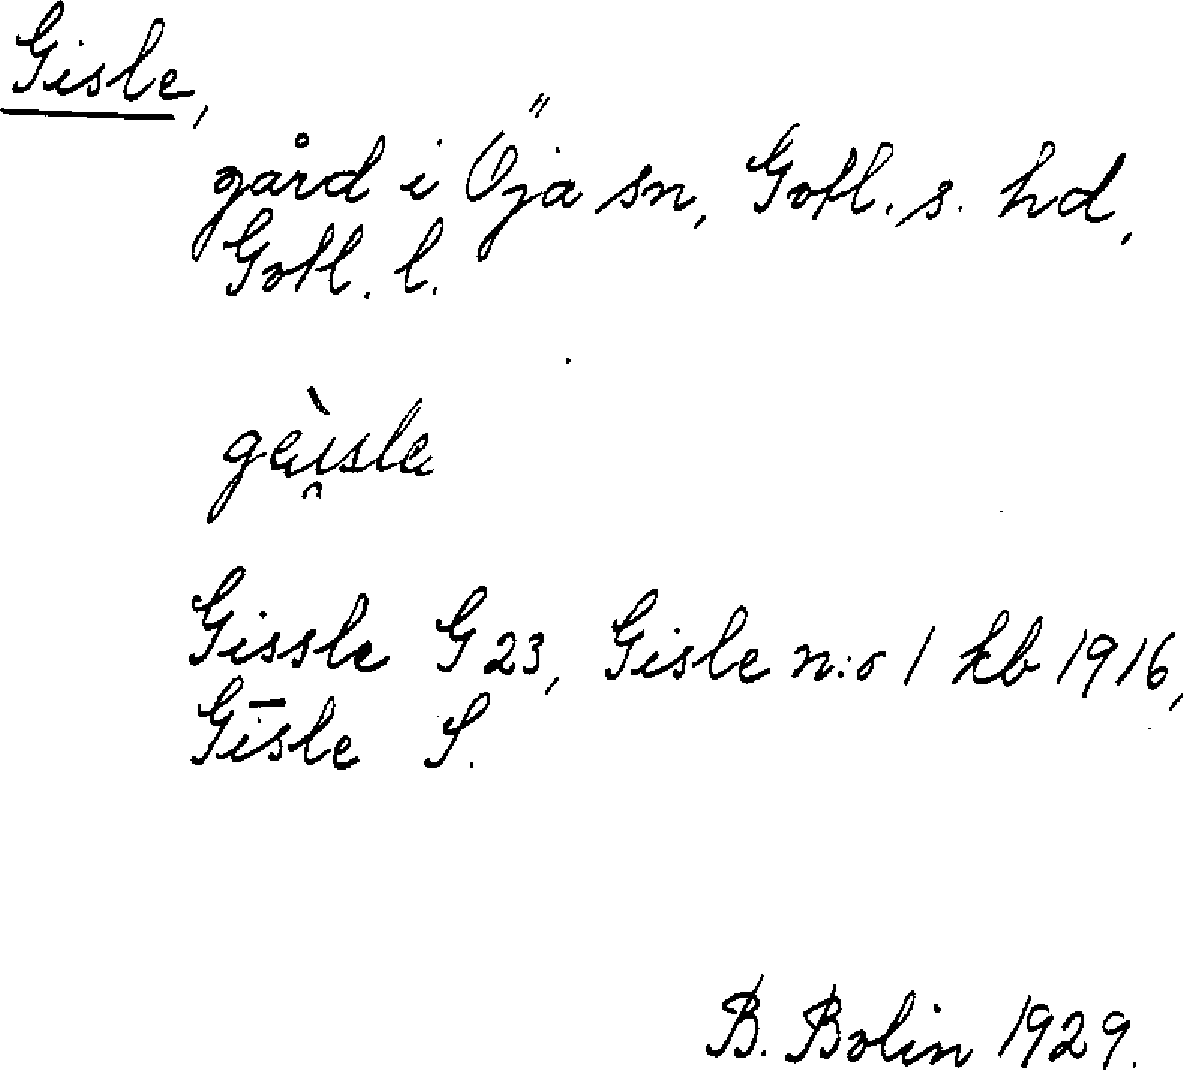 Gisle,
gård i Öja sn, Gotl. s. hd,
Gotl. l.
gàı̯sla
Gissle G 23, Gisle n:o 1 kb 1916,
Gīsle S.
B. Bolin 1929.